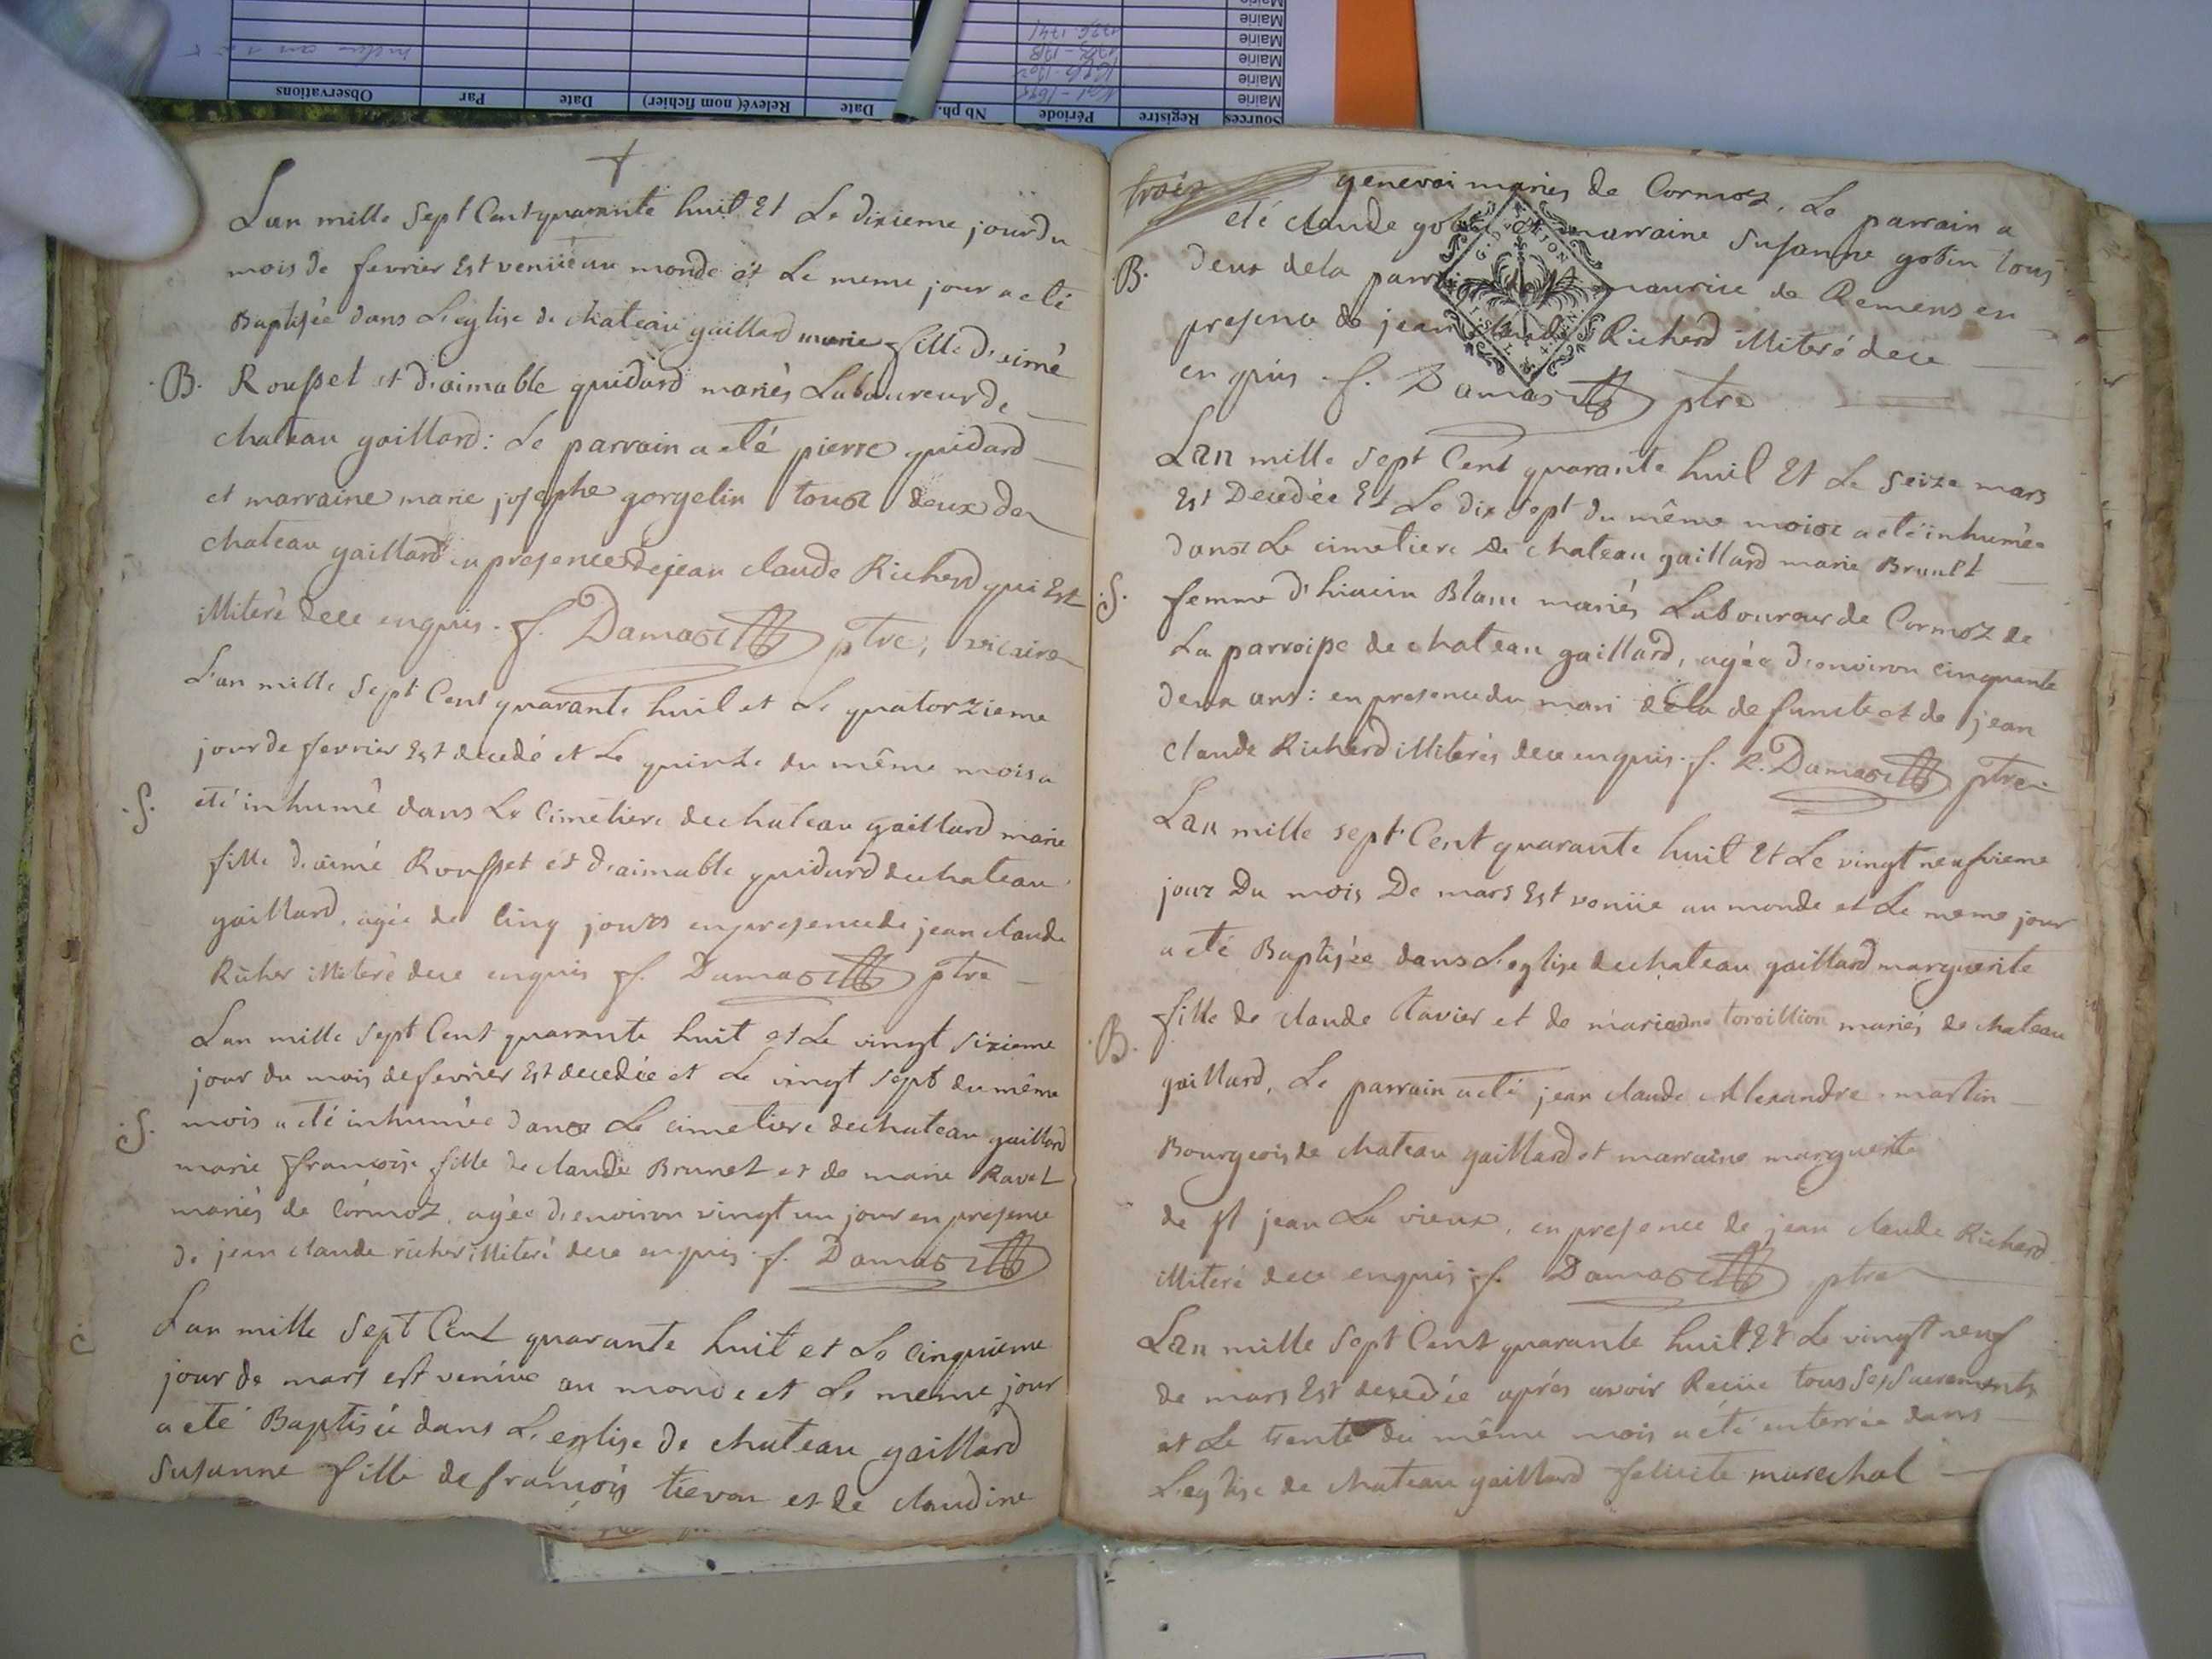 Sources Registre Période Nb ph. Date Relevé( nom fichier) Date Par Observations
Mairie
Mairie
Mairie
Mairie
Mairie
Lan mille Sept Cent quarante huit Et Le dixieme jour du
mois de fevrier Est venüe au monde et Le meme jour a eté
Baptisée dans L'eglise de chateau gaillard marie fille d'aimé
B. Rousset et d'aimable guidard mariés Laboureur de
chateau gaillard: Le parrain a eté pierre guidard
et marraine marie josephe gorgelin tous deux de
chateau gaillard en presence de jean claude Richerd qui Est
illiteré de ce enquis. f. Damas ptre, vicaire
L'an mille Sept Cent quarante huit et Le quatorzieme
jour de fevrier Est decedé et Le quinze du même mois a
S. eté inhumé dans Le Cimetiere de chateau gaillard marie
fille d'aimé Rousset et d'aimable guidard de chateau
gaillard, agée de Cinq jours en presence de jean claude
Richer illiteré de ce enquis f. Damas ptre
Lan mille Sept Cent quarante huit et Le vingt sixieme
jour du mois de fevrier Est decedée et Le vingt sept du même
S. mois a eté inhumée dans Le cimetiere de chateau gaillard
marie françoise fille de claude Brunet et de marie Ravet
mariés de Cormoz, agée d'environ vingt un jour en presence
de jean claude richer illiteré de ce enquis. f. Damas
Lan mille Sept Cent quarante huit et Le cinquieme
jour de mars est venüe au monde et Le meme jour
a eté Baptisée dans L'eglise de chateau gaillard
Susanne fille de françois trevon et de claudine
trois genevoi mariés de Cormoz. Le parrain a
eté claude gobin et marraine Susanne gobin tous
B. deux de la parroisse maurice de Remens en
presence de jean claude Richerd illiteré de ce
enquis. f. Damas ptre
Lan mille Sept Cent quarante huit Et Le Seize mars
Est Decedée Et Le dix Sept du même mois a eté inhumée
dans Le cimetiere de chateau gaillard marie Brunet
S. femme d'hiacin Blanc mariés Laboureur de Cormoz de
La parroisse de chateau gaillard, agée d'environ cinquante
deux ans: en presence du mari de la defuncte et de jean
claude Richerd illiterés de ce enquis. f. Damas ptre
Lan mille sept Cent quarante huit Et Le vingt neufvieme
jour Du mois De mars Est venüe au monde et Le meme jour
a eté Baptisée dans L'eglise de chateau gaillard marguerite
B. fille de claude Clavier et de marie toroillion mariés de chateau
gaillard, Le parrain a eté jean claude Alexandre martin
Bourgeois de chateau gaillard et marraine marguerite
de st jean Le vieux, en presence de jean claude Richerd
illiteré de ce enquis. f. Damas ptre
Lan mille Sept Cent quarante huit Et Le vingt neuf
de mars Est decedée aprés avoir Reçüe tous Ses Sacrements
et Le trente du même mois a eté enterrée dans
L'eglise de chateau gaillard felicite marechal